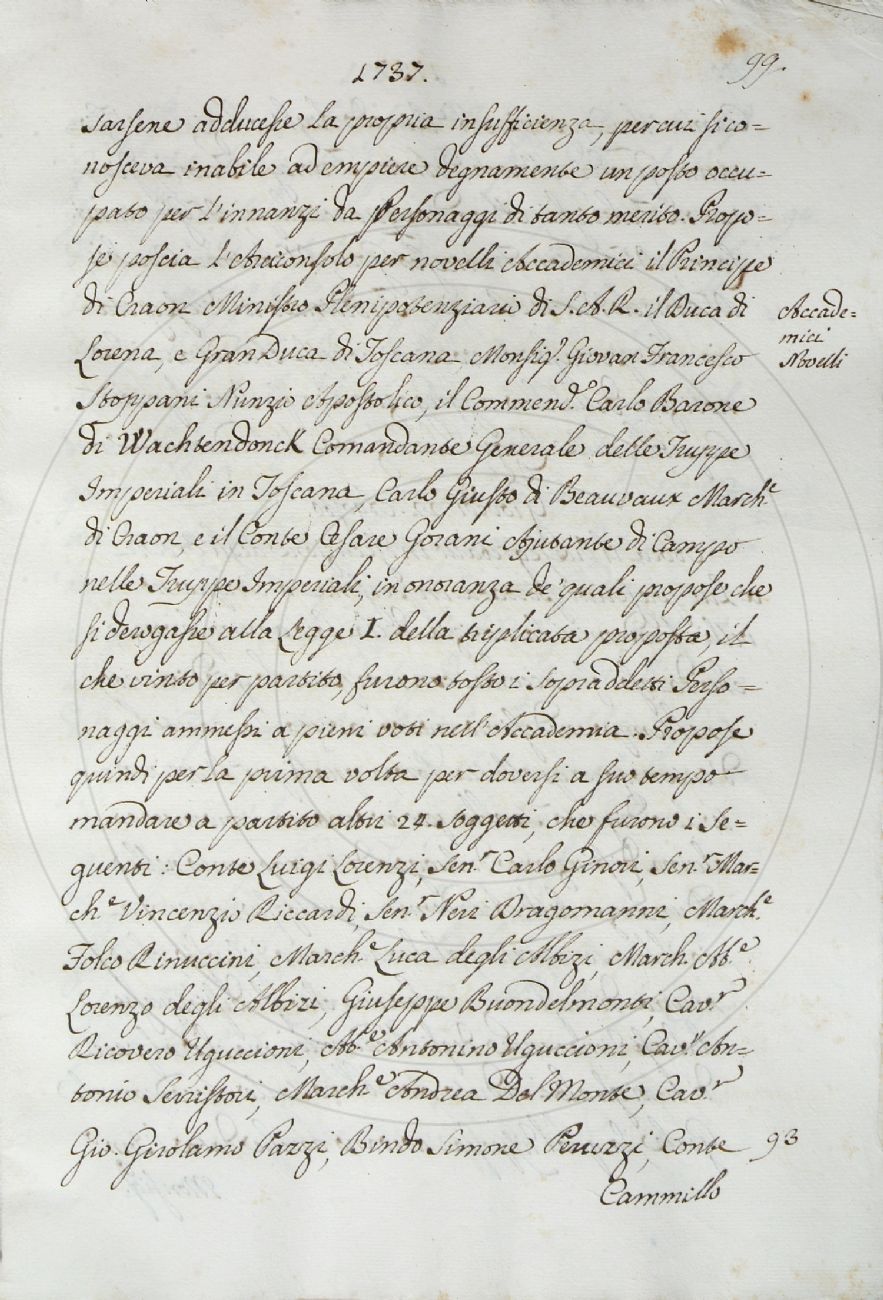 1737.
99.
sarsene adducesse la propria insufficienza, per cui si co=
nosceva inabile ad empiere degnamente un posto occu=
pato per l'innanzi da Personaggi di tanto merito. Propo=
se poscia l'Arciconsolo per novelli Accademici il Principe
di Craon Ministro Plenipotenziario di S. A. R. il Duca di
Accade=
mici
Novelli
Lorena, e Gran Duca di Toscana Monsig.r Giovan Francesco
Stoppani Nunzio Apostolico, il Commend.e Carlo Barone
di Wachtendonck Comandante Generale delle Truppe
Imperiali in Toscana, Carlo Giusto di Beauvaux March.e
di Craon, e il Conte Cesare Gorani Ajutante di Campo
nelle Truppe Imperiali, in onoranza de' quali propose che
si derogasse alla Legge I. della triplicata proposta, il
che vinto per partito, furono tosto i sopraddetti Perso=
naggi ammessi a pieni voti nell'Accademia. Propose
quindi per la prima volta per doversi a suo tempo
mandare a partito altri 24. Soggetti, che furono i se=
guenti: Conte Luigi Lorenzi, Sen.r Carlo Ginori, Sen.r Mar=
ch.e Vincenzio Riccardi, Sen.r Neri Dragomanni, March.e
Folco Rinuccini, March.e Luca degli Albizi, March. Ab.e
Lorenzo degli Albizi, Giuseppe Buondelmonti, Cav.r
Ricovero Uguccioni, Ab.e Antonino Uguccioni, Cav.r An=
tonio Serristori, March.e Andrea Del Monte, Cav.r
Gio. Girolamo Pazzi, Bindo Simone Peruzzi, Conte
93
Cammillo